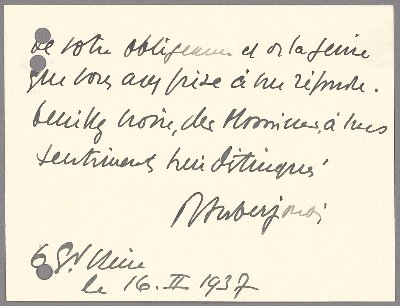 de votre obligeance et de la peine
que vous avez prise à me répondre.
Veuillez croire, cher Monsieur, à mes
sentiments très distingués
R Auberjonois
6 Gd Chêne
le 16. II 1937